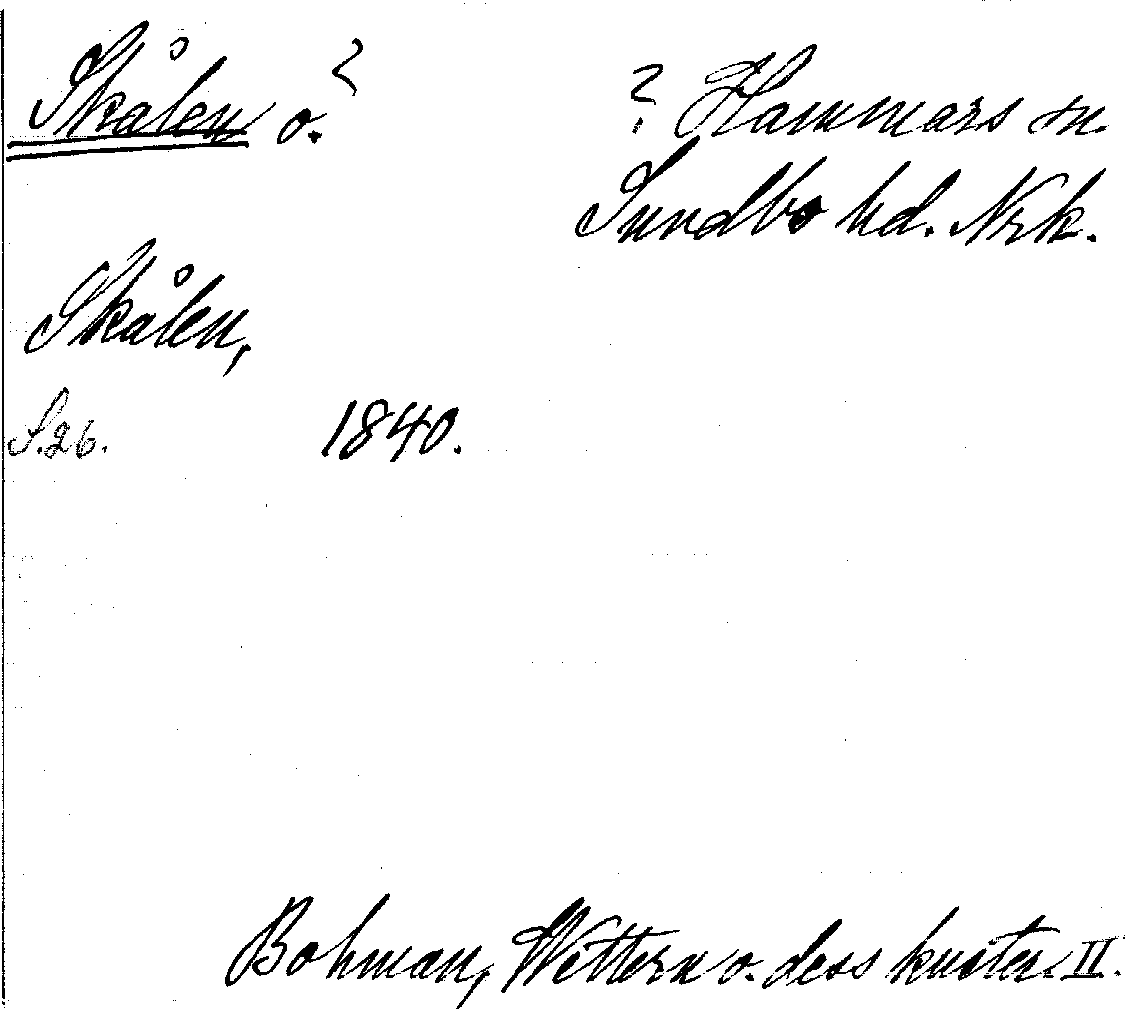 Skålen o.?
? Hammars sn.
Sundbo hd. Nrk.
Skålen,
S. 26. 1840.
Bohman, Wettern o. dess kuster. II.